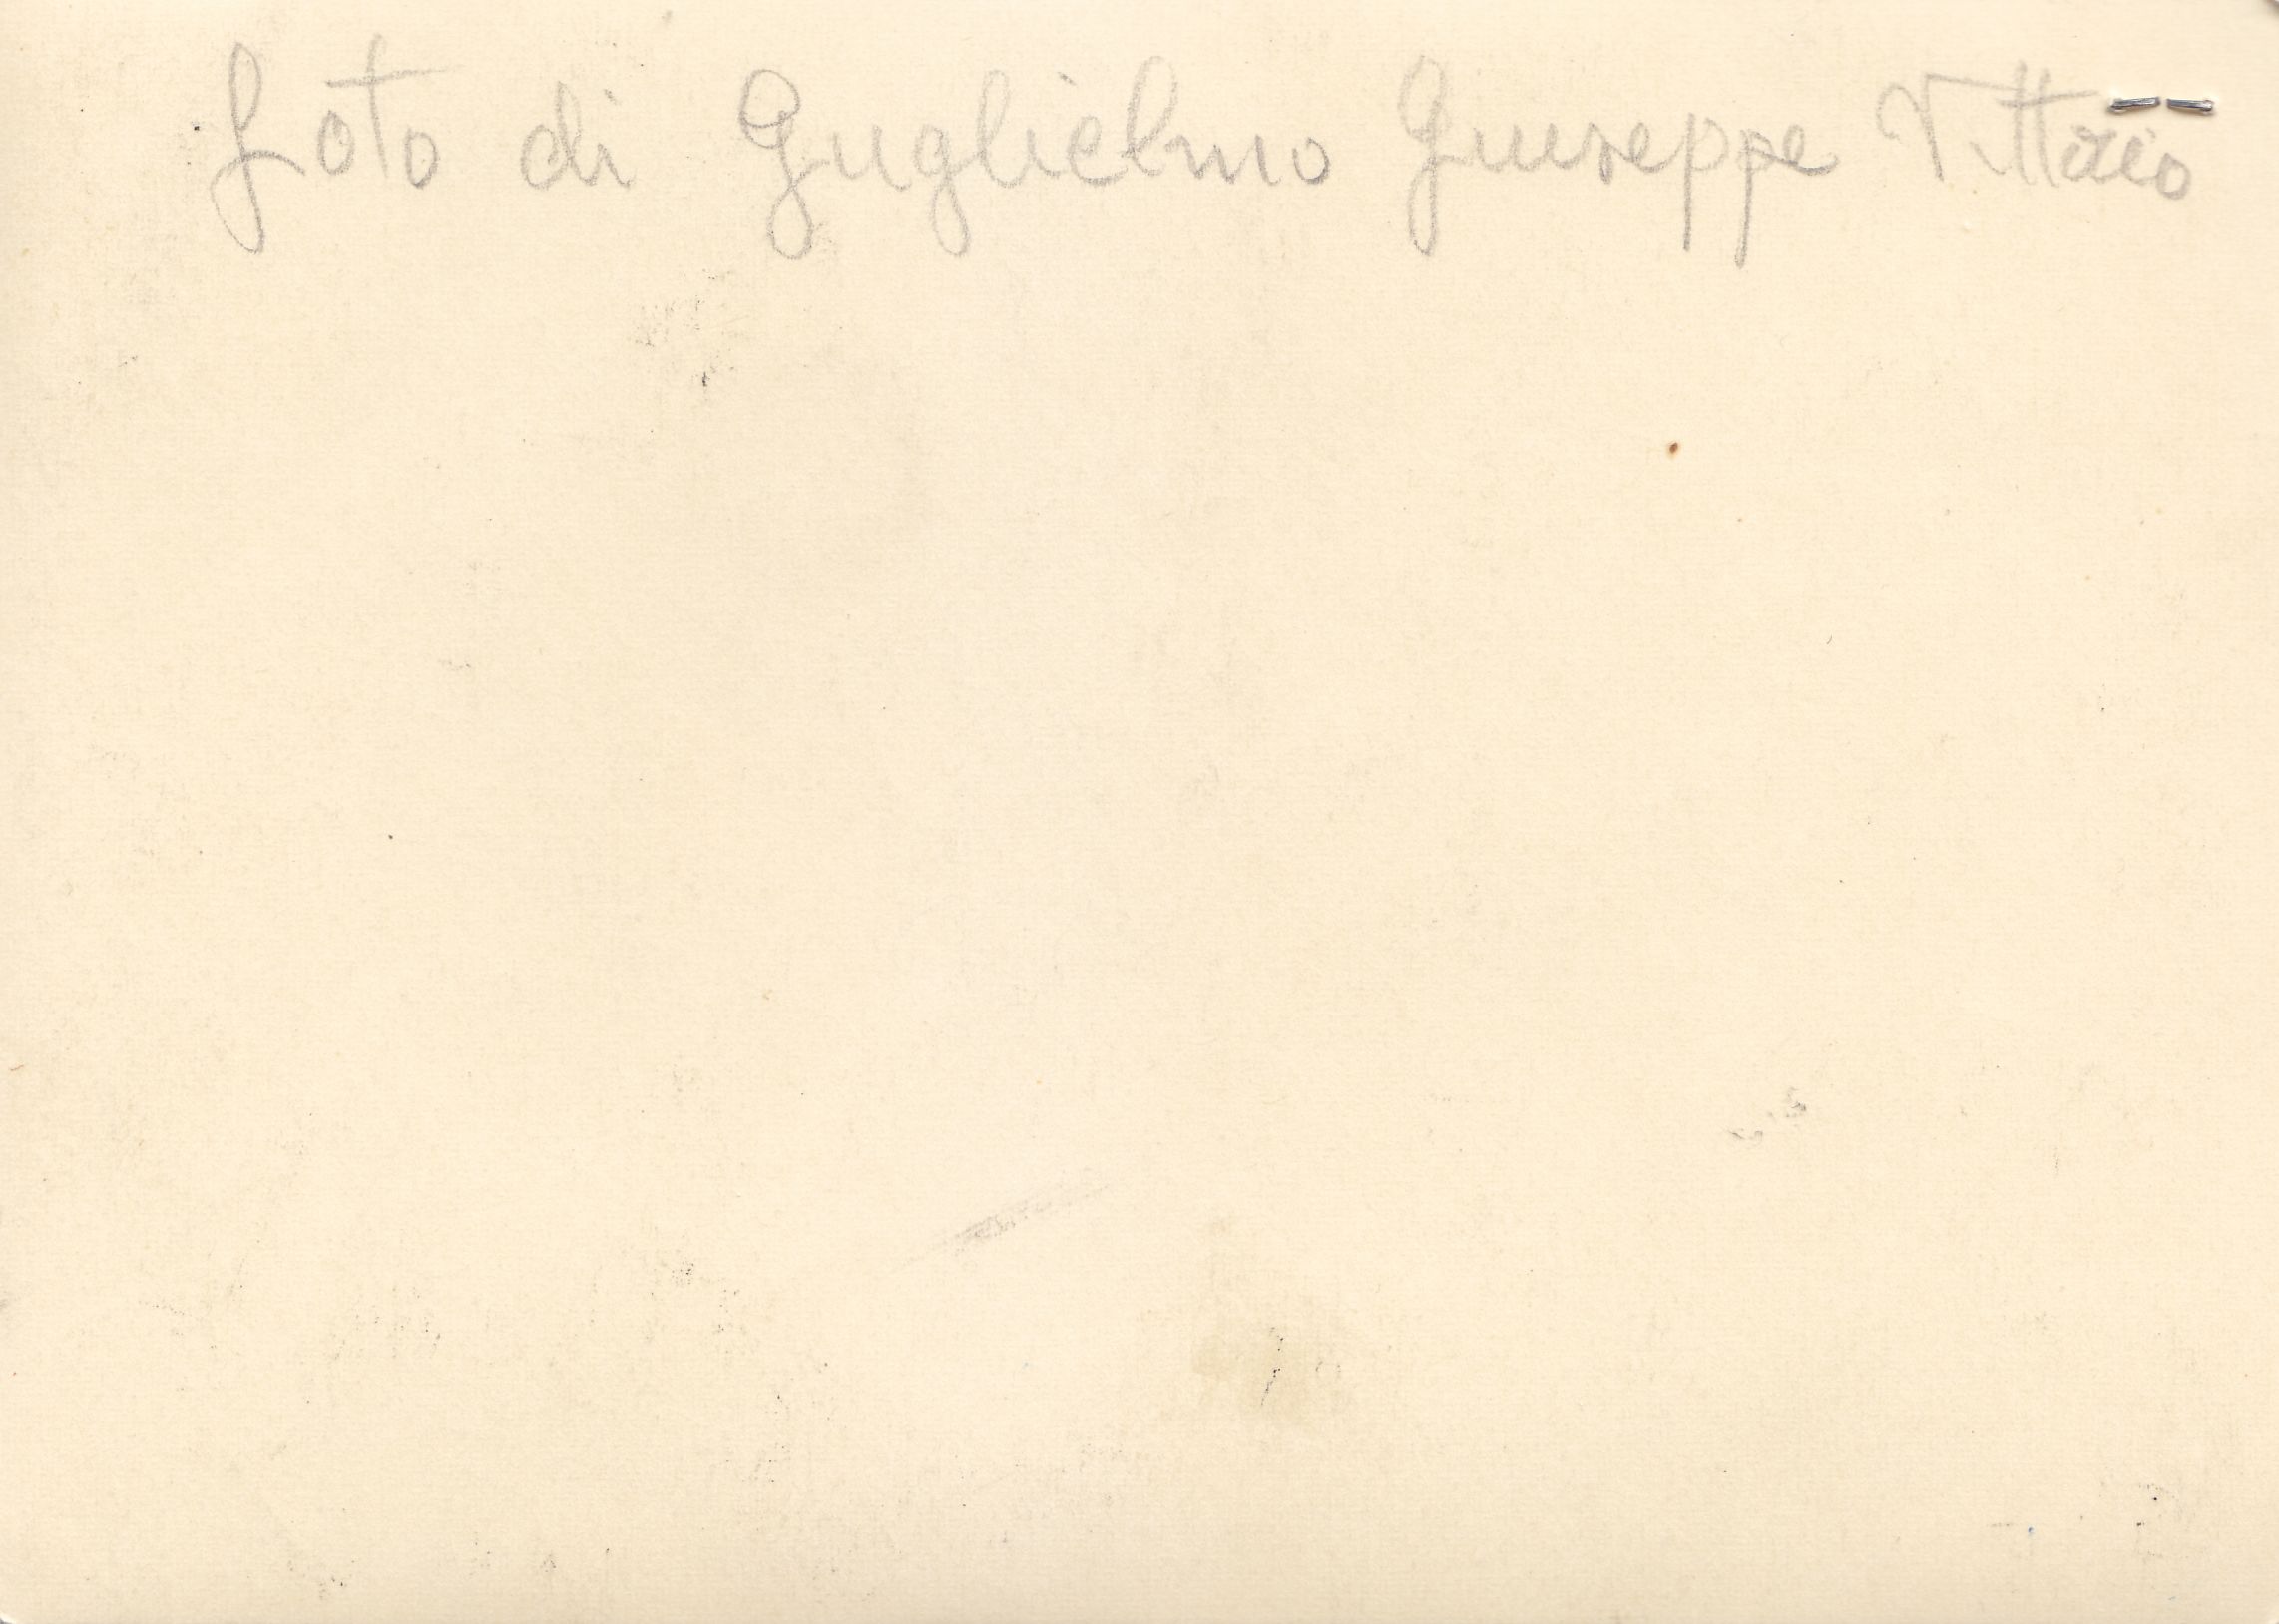 foto di Guglielmo Giuseppe Vittorio